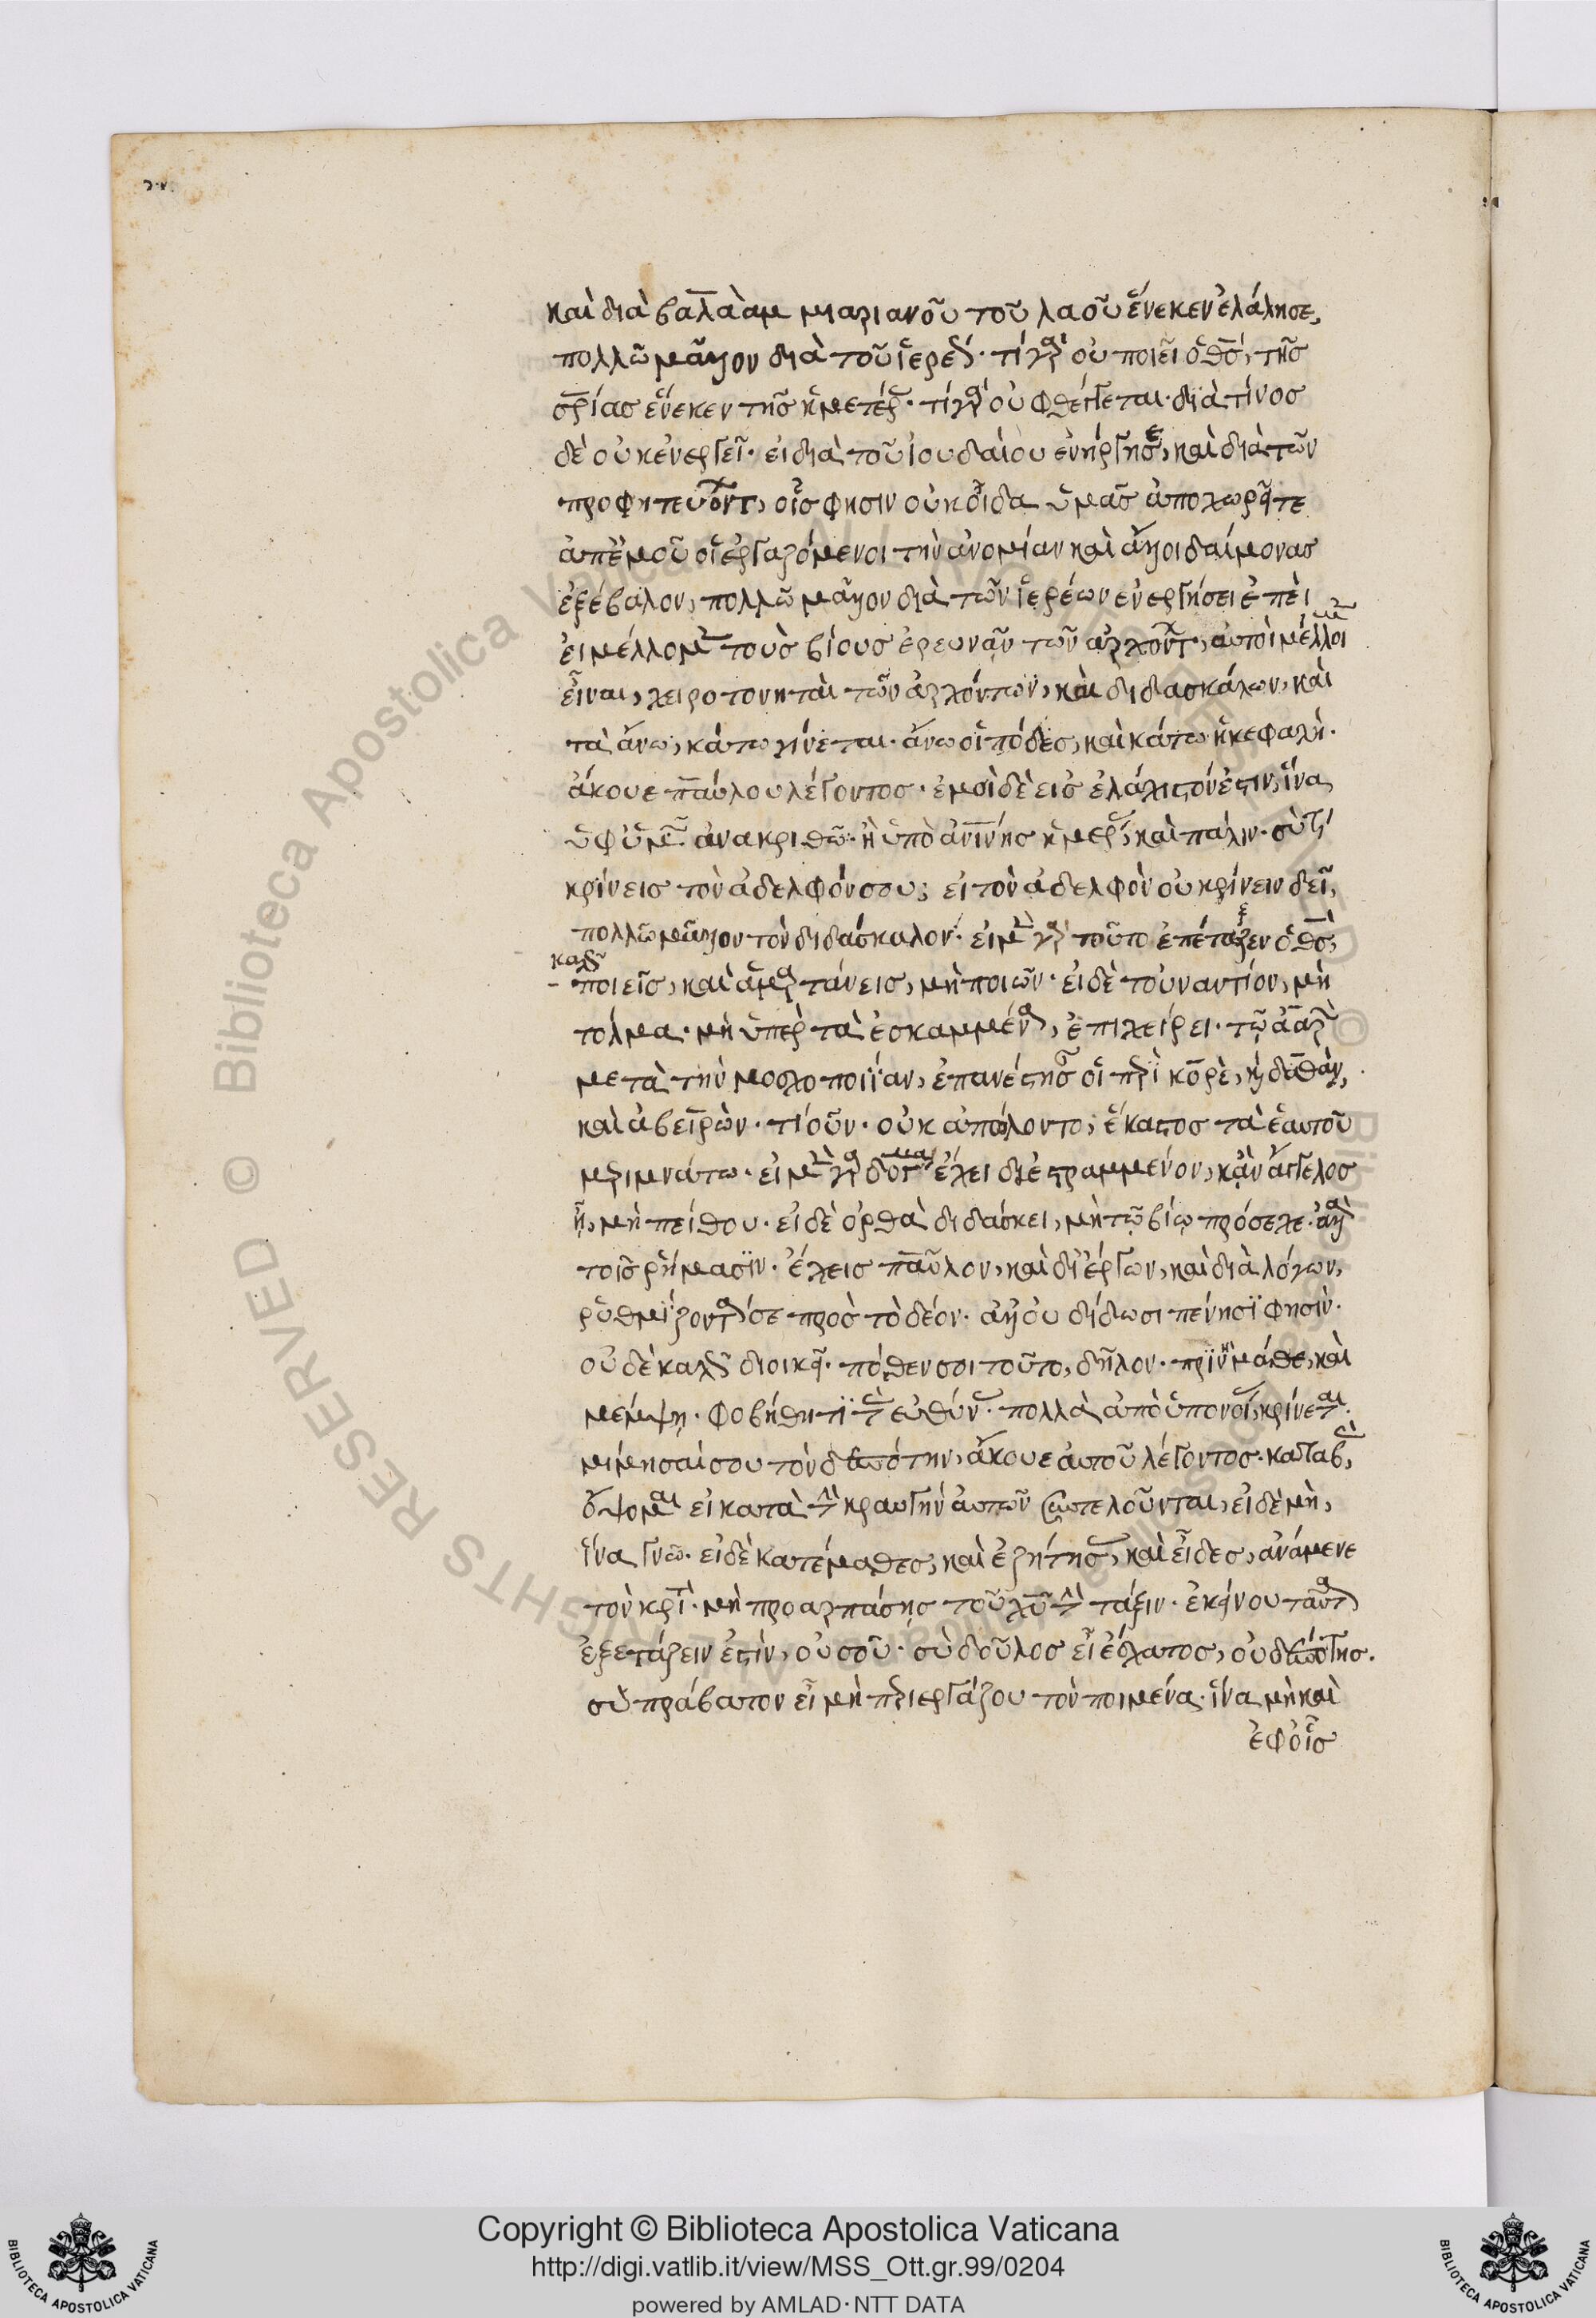 καὶ διὰ βαλαὰμ μιαριανοῦ τοῦ λαοῦ ἕνεκεν ἐλάλησε,
πολλῶ μᾶλλον διὰ τοῦ ἱερέως. τί γὰρ οὐ ποιεῖ ὁ θσ, τῆσ
σρίασ ἕνεκεν τῆσ ἡμετέρας. τί γὰρ οὐ φθέγγεται. διὰ τίνοσ
δὲ οὐκ ἐνεργεῖ. εἰ διὰ τοῦ ἰουδαίου ἐνήργησε, καὶ διὰ τῶν
προφητευόντων, οἷσ φησιν οὐκ οἶδα ὑμᾶσ ἀποχωρεῖτε
ἀπ' ἐμοῦ οἱ ἐργαζόμενοι τὴν ἀνομίαν καὶ ἄλλοι δαίμονασ
ἐξέβαλον, πολλῶ μᾶλλον διὰ τῶν ἱερέων ἐνεργήσει ἐπεὶ
εἰ μέλλομεν τοὺσ βίουσ ἐρευνᾶν τῶν ἀρχόντων, αὐτοὶ μέλλοιμεν
εἶναι, χειροτονηταὶ τῶν ἀρχόντων, καὶ διδασκάλων, καὶ
τὰ ἄνω, κάτω γίνεται. ἄνω οἱ πόδεσ, καὶ κάτω ἡ κεφαλὴ.
ἄκουε παύλου λέγοντοσ. ἐμοὶ δὲ εἰσ ἐλάχιστόν ἐστιν, ἵνα
ὑφ' ὑμῶν ἀνακριθῶ. ἢ ὑπὸ ἀνίνησ ἡμέρας, καὶ πάλιν. σὺ τί
κρίνεισ τὸν ἀδελφόν σου; εἰ τὸν ἀδελφὸν οὐ κρίνειν δεῖ,
πολλῶ μᾶλλον τὸν διδάσκαλον. εἰ μὲν γὰρ τοῦτο ἐπέταξεν ὁ θσ,
καλῶς
ποιεῖσ, καὶ ἁμαρτάνεισ, μὴ ποιῶν. εἰ δὲ τοὐναντίον, μὴ
τόλμα. μὴ ὑπὲρ τὰ ἐσκαμμένα, ἐπιχείρει. τῷ ἀαρὼν
μετὰ τὴν μοσχοποιΐαν, ἐπανέστησαν οἱ περὶ κορὲ, καὶ δαθὰν,
καὶ ἀβειρών. τί οὖν. οὐκ ἀπώλοντο; ἕκαστοσ τὰ ἑαυτοῦ
μεριμνάτω. εἰ μὲν γὰρ δόγμα ἔχει διεστραμμένον, κἂν ἄγγελοσ
ᾖ, μὴ πείθου. εἰ δὲ ὀρθὰ διδάσκει, μὴ τῷ βίῳ πρόσεχε. ἀλλὰ
τοῖσ ῥήμασϊν. ἔχεισ παῦλον, καὶ δι' ἔργων, καὶ διὰ λόγων,
ῥυθμίζοντά σε πρὸσ τὸ δέον. ἀλλ' οὐ δίδωσι πένησί φησὶν.
οὐδὲ καλῶς διοικεῖ. πόθεν σοι τοῦτο, δῆλον. πρὶν ἢ μάθῃς, καὶ
μέμψῃ. φοβήθητι τὰς εὐθύνας. πολλὰ ἀπὸ ὑπονοίας κρίνεται.
μίμησαί σου τὸν δεσπότην, ἄκουε αὐτοῦ λέγοντοσ. καταβὰς,
ὄψομαι εἰ κατὰ τὴν κραυγὴν αὐτῶν συντελοῦνται, εἰ δὲ μὴ,
ἵνα γνῶ. εἰ δὲ κατέμαθεσ, καὶ ἐζήτησας, καὶ εἶδεσ, ἀνάμενε
τὸν κριτὴν. μὴ προαρπάσησ τοῦ χυ τὴν τάξιν. ἐκείνου ταῦτα
ἐξετάζειν ἐστὶν, οὐ σοῦ. σὺ δοῦλοσ εἶ ἔσχατοσ, οὐ δεσπότησ.
σὺ πρόβατον εἶ μὴ περιεργάζου τὸν ποιμένα. ἵνα μὴ καὶ
ἐφ' οἷσ
Copyright © Biblioteca Apostolica Vaticana
http://digi.vatlib.it/view/MSS_Ott.gr.99/0204
powered by AMLAD · NTT DATA